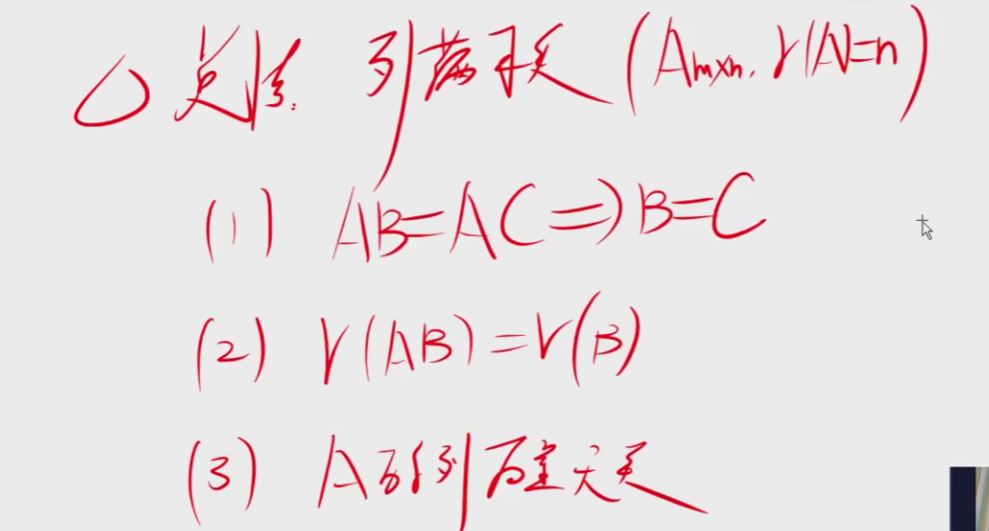 总结: 列满秩 (A m×n, r(A)=n)
(1) AB=AC⇒B=C
(2) r(AB)=r(B)
(3) A的列向量无关